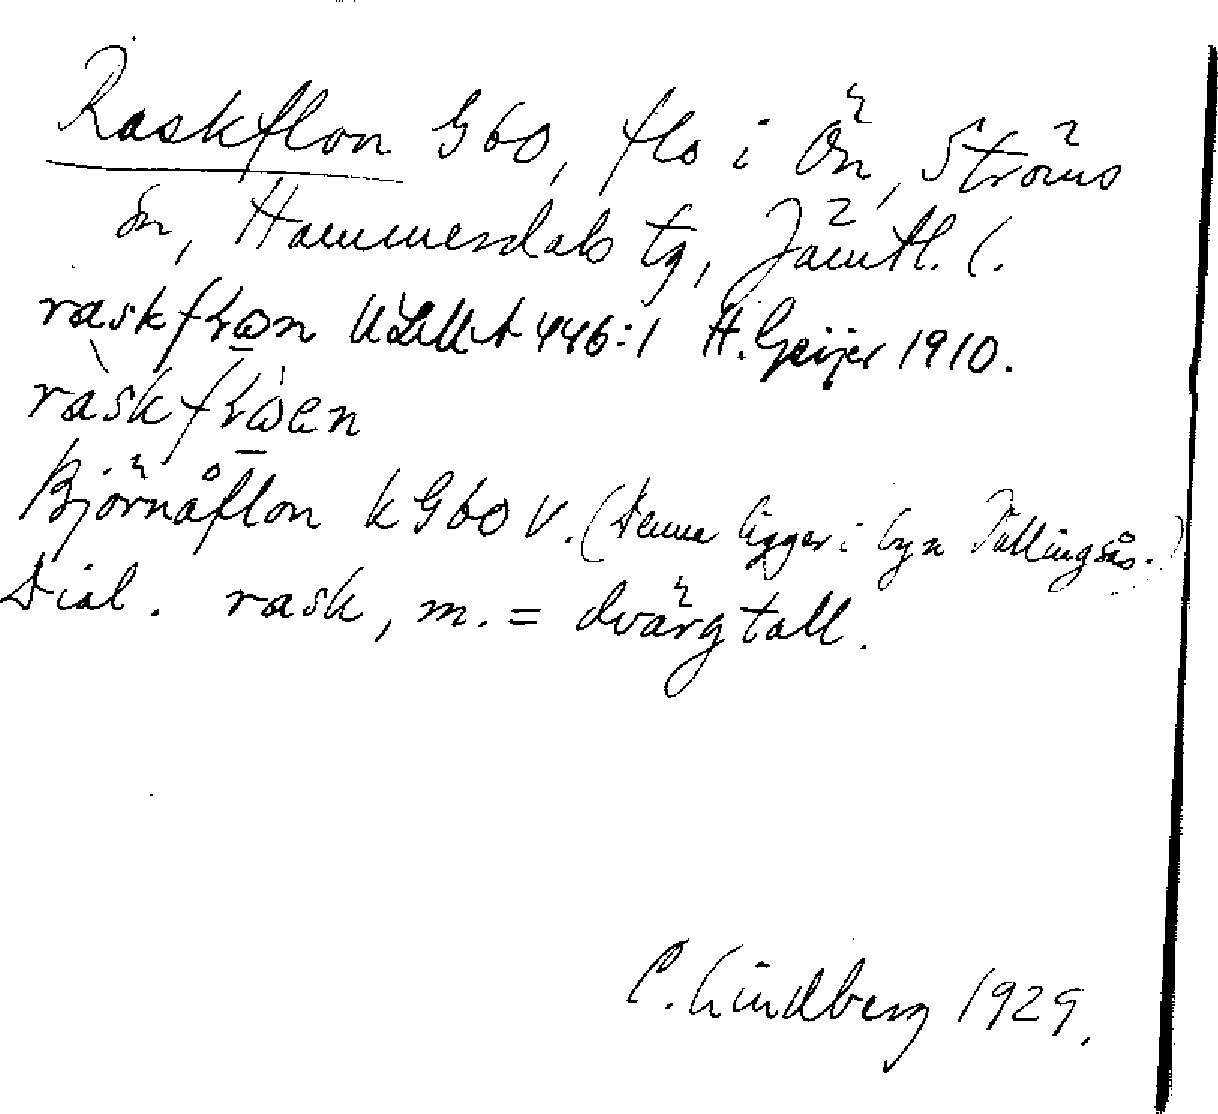 Raskflon G60, flo i Ön, Ströms
sn, Hammerdals tg, Jämtl. l.
raskfɽωn ULMA 446:1 H. Geijer 1910.
ràskfɽὼen
Björnåflon k G60 V. (Denne ligger i byn Tullingsås.)
Dial. rask, m. = dvärgtall.
C. Lindberg 1929.